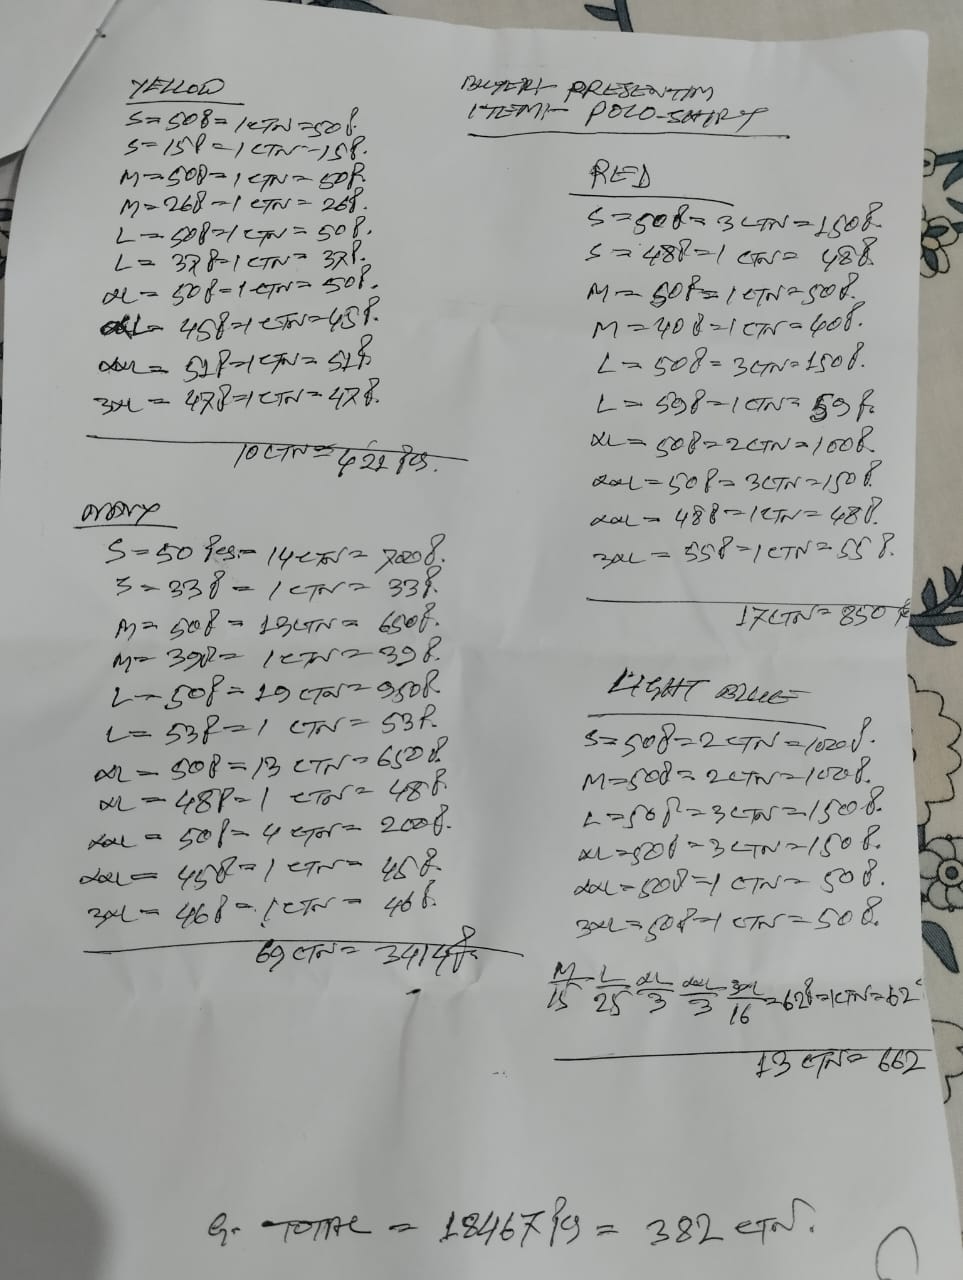 YELLOW
S=50P=1CTN=50P.
S=15P=1CTN=15P.
M=50P=1CTN=50P.
M=26P=1CTN=26P.
L=50P=1CTN=50P.
L=37P=1CTN=37P.
XL=50P=1CTN=50P.
45P=1CTN=45P.
XXL=51P=1CTN=51P
3XL=47P=1CTN=47P.
10CTN=421 Pcs.
NAVY
S=50 Pcs=14CTN=700P.
S=33P=1CTN=33P.
M=50P=13CTN=650P.
M=39P=1CTN=39P.
L=50P=19CTN=950P.
L=53P=1 CTN=53P.
XL=50P=13 CTN=650P.
XL=48P=1 CTN=48P.
XXL=50P=4 CTN=200P.
XXL=45P=1 CTN=45P.
3XL=46P=1CTN=46P.
69CTN=3414P
BUYER:- PRESENTIM
ITEM:- POLO-SHIRT
RED
S=50P=3CTN=150P.
S=48P=1 CTN=48P.
M=50P=1CTN=50P.
M=40P=1CTN=40P.
L=50P=3CTN=150P.
L=59P=1CTN=59P.
XL=50P=2CTN=100P.
XXL=50P=3CTN=150P.
XXL=48P=1CTN=48P.
3XL=55P=1CTN=55P.
17CTN=850 P
LIGHT BLUE
S=50P=2CTN=100P.
M=50P=2CTN=100P.
L=50P=3CTN=150P.
XL=50P=3CTN=150P.
XXL=50P=1 CTN=50P.
3XL=50P=1 CTN=50P.
M/15 L/25 XL/3 XXL/3 3XL/16=62P=1CTN=62
13 CTN=662
G. TOTAL = 18467 Pcs = 382 CTN.